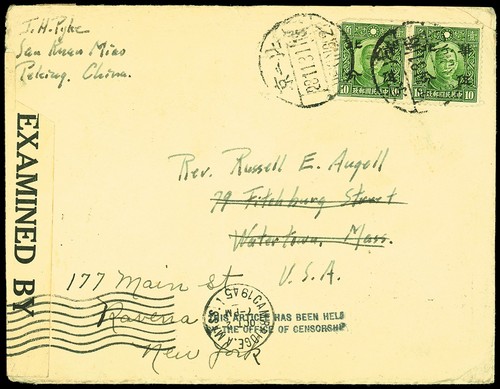 J. H. Pyke
San Kuan Miao
Peking, China.
華北
10 政郵國民華中 10
EXAMINED BY
Rev. Russell E. Angell
79 Fitchburg Street
Watertown, Mass.
U.S.A.
177 Main St
Ravena
New York
CAMBRIDGE MASS.
1945
THIS ARTICLE HAS BEEN HELD
BY THE OFFICE OF CENSORSHIP